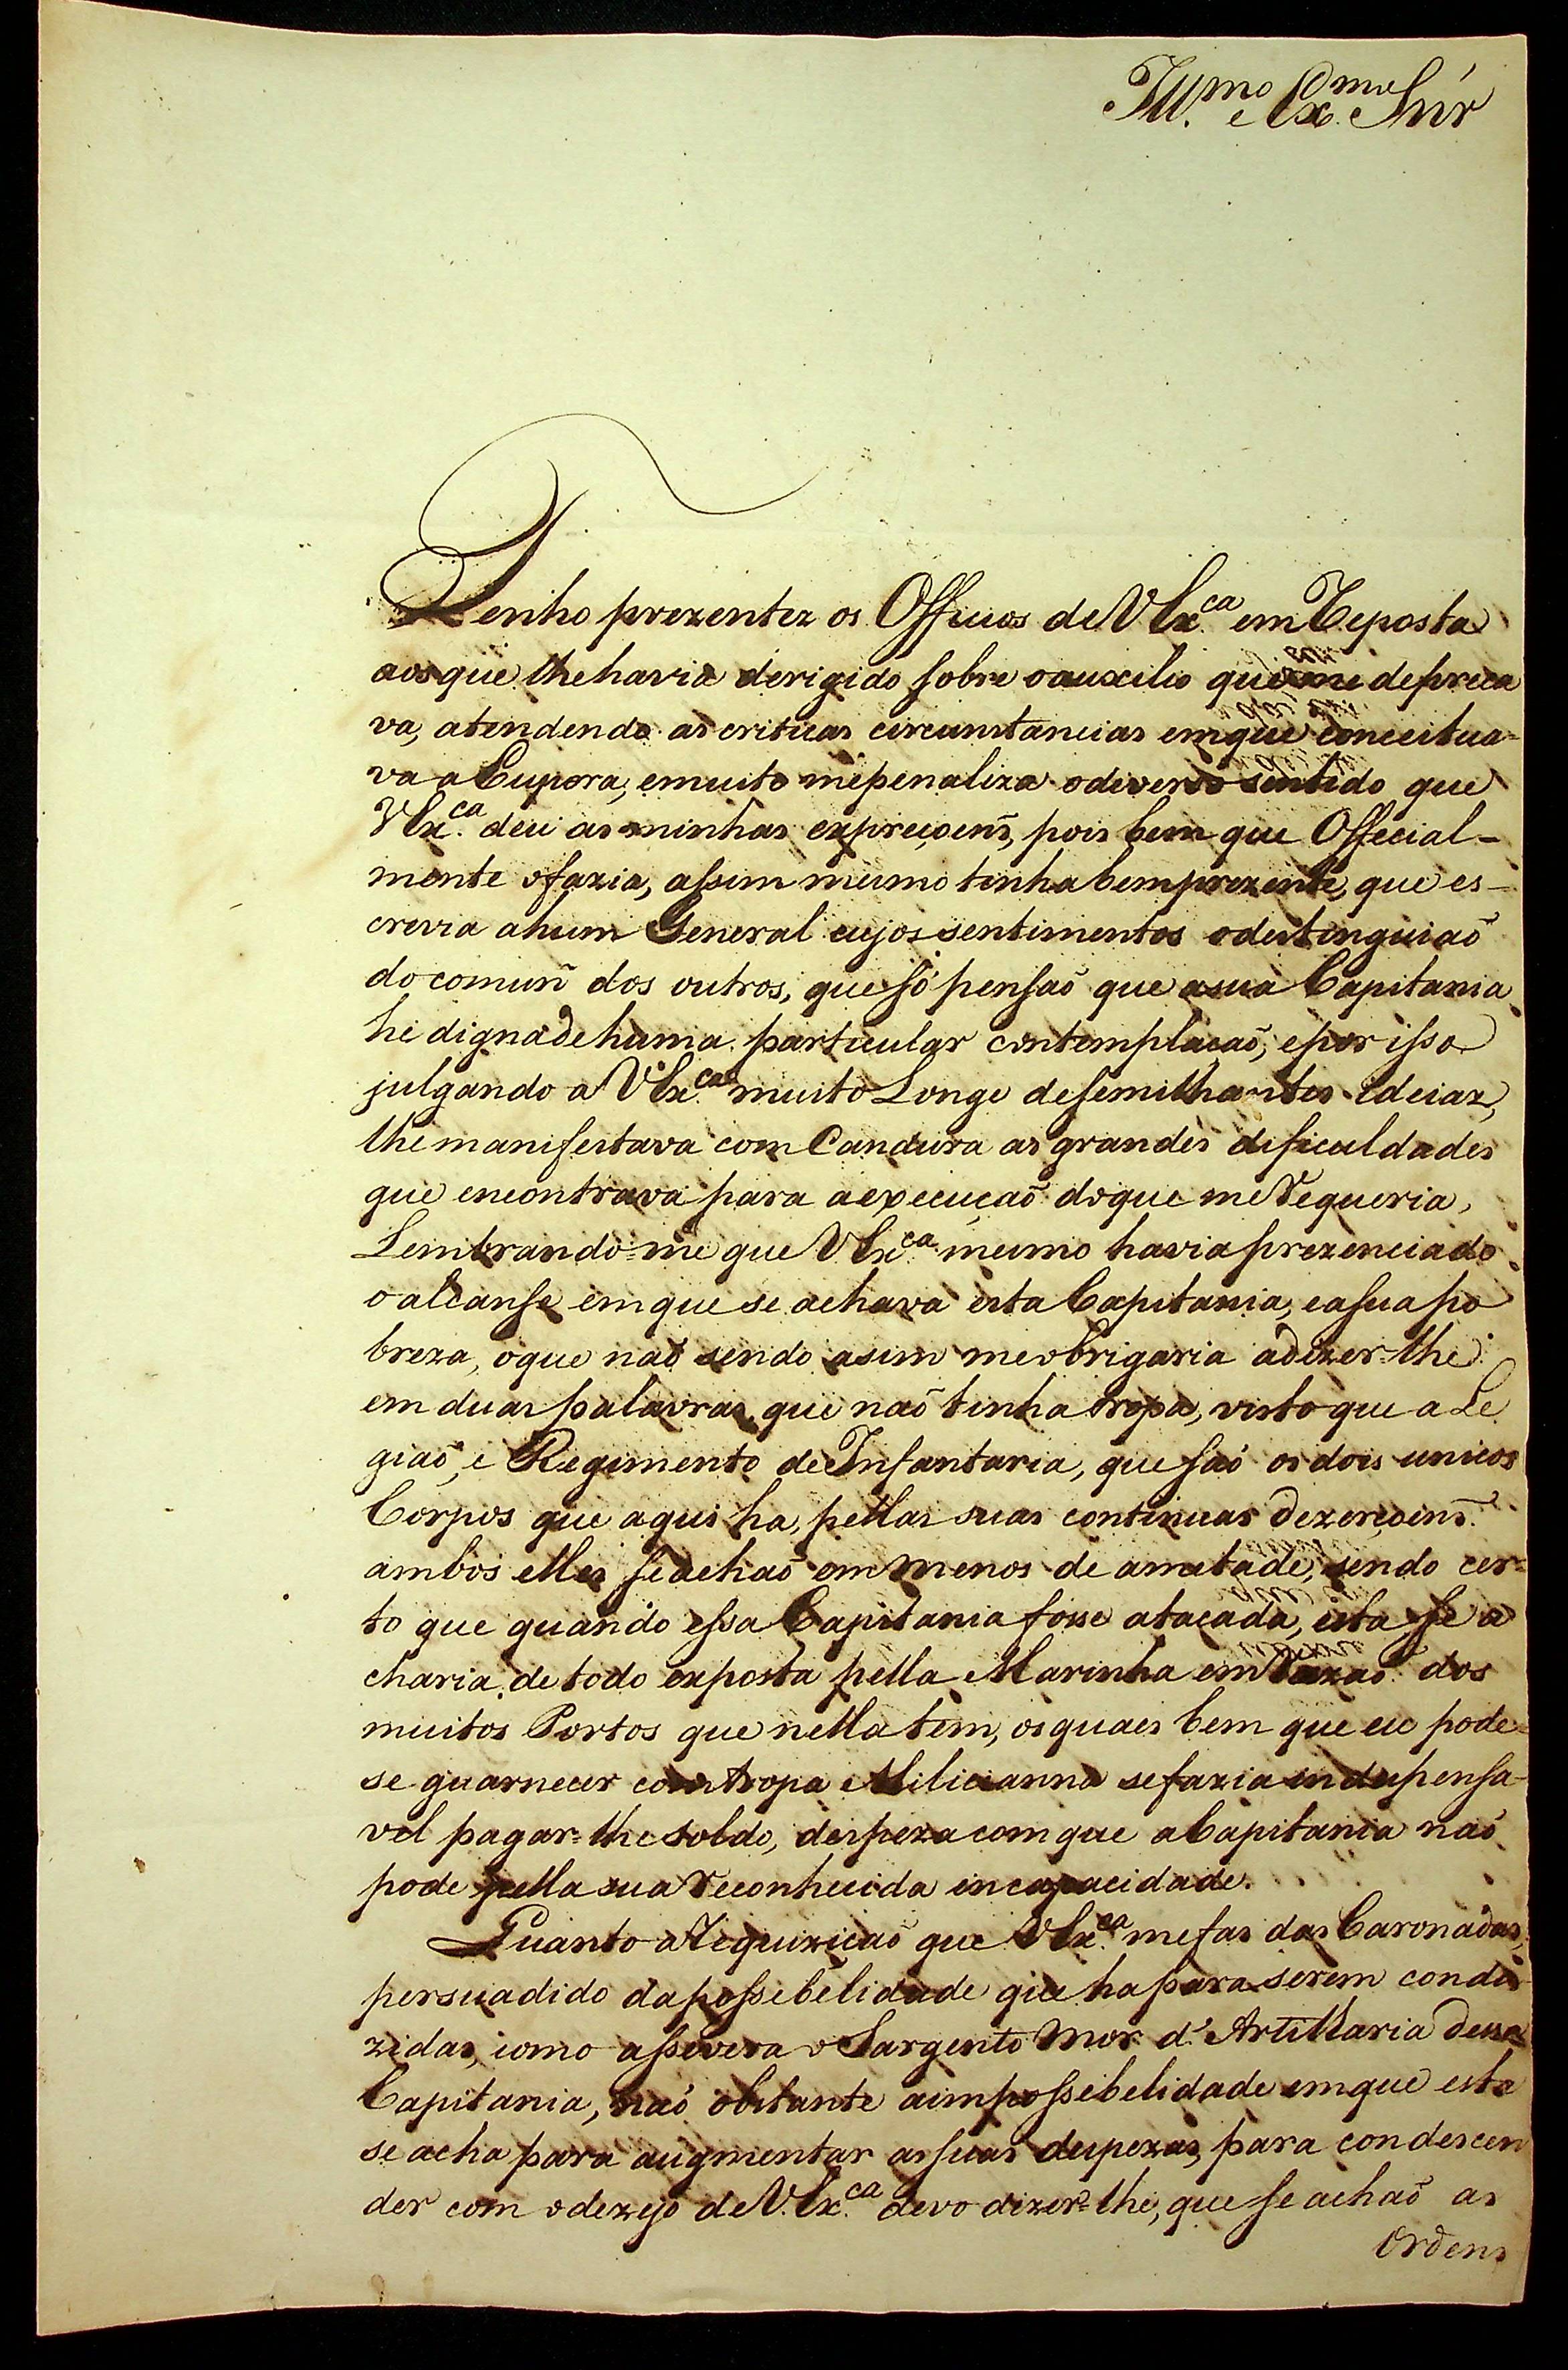 Ill.mo e Ex.mo Snr
Tenho prezentez os Officios de V Ex.ca em Reposta
aosque lhe havia derigido sobre oauxilio que me depreca
va, atendendo as criticas circunstancias emque conceitua-
va a Eupora, emuito mepenaliza odiverso sentido que
V Ex.ca deu as minhas expreçoens, pois bem que Official-
mente ofazia, assim mesmo tinha bemprezente, que es-
crevia ahum General cujos sentimentos odestinguiaõ
do comum dos outros, que só pensaõ que asua Capitania
he digna dehuma particular contemplacaõ, epor isso
julgando a V Ex.ca muito Longe desemilhantes ideiaz,
lhe manifestava com Candura as grandes dificuldades
que encontrava para aexecuçaõ doque me requeria,
Lembrando-me que V Ex.ca mesmo havia prezenciado
oalcanse emque se achava esta Capitania, easua po
breza, oque naõ sendo asim meobrigaria adizer-lhe
em duas palavras, que naõ tinha tropa, visto que a Le
giaõ, e Regimento de Infantaria, que saõ os dois unicos
Corpos que aqui ha, pellas suas continuas Dezerçoens
ambos elles seachaõ em menos de ametade, sendo cer-
to que quando essa Capitania fosse atacada, esta se a
charia, de todo exposta pella Marinha em Razaõ dos
muitos Portos que nella tem, osquaes bem que eu pode-
se guarnecer com tropa Milicianna sefazia indespensa-
vel pagar-lhe soldo, despeza comque aCapitania naõ
pode pella sua reconhecida incapacidade.
Quanto aRequiziçaõ que V Ex.ca mefas das Caronadas,
persuadido dapossebelidade que ha para serem condu-
zidas, como assevera o Sargento Mor d'Artilharia dessa
Capitania, naõ obstante aimpossebelidade emque esta
se acha para augmentar assuas despezas, para condescen
der com odezejo de V.Ex.ca devo dizer-lhe, que se achaõ as
Ordens